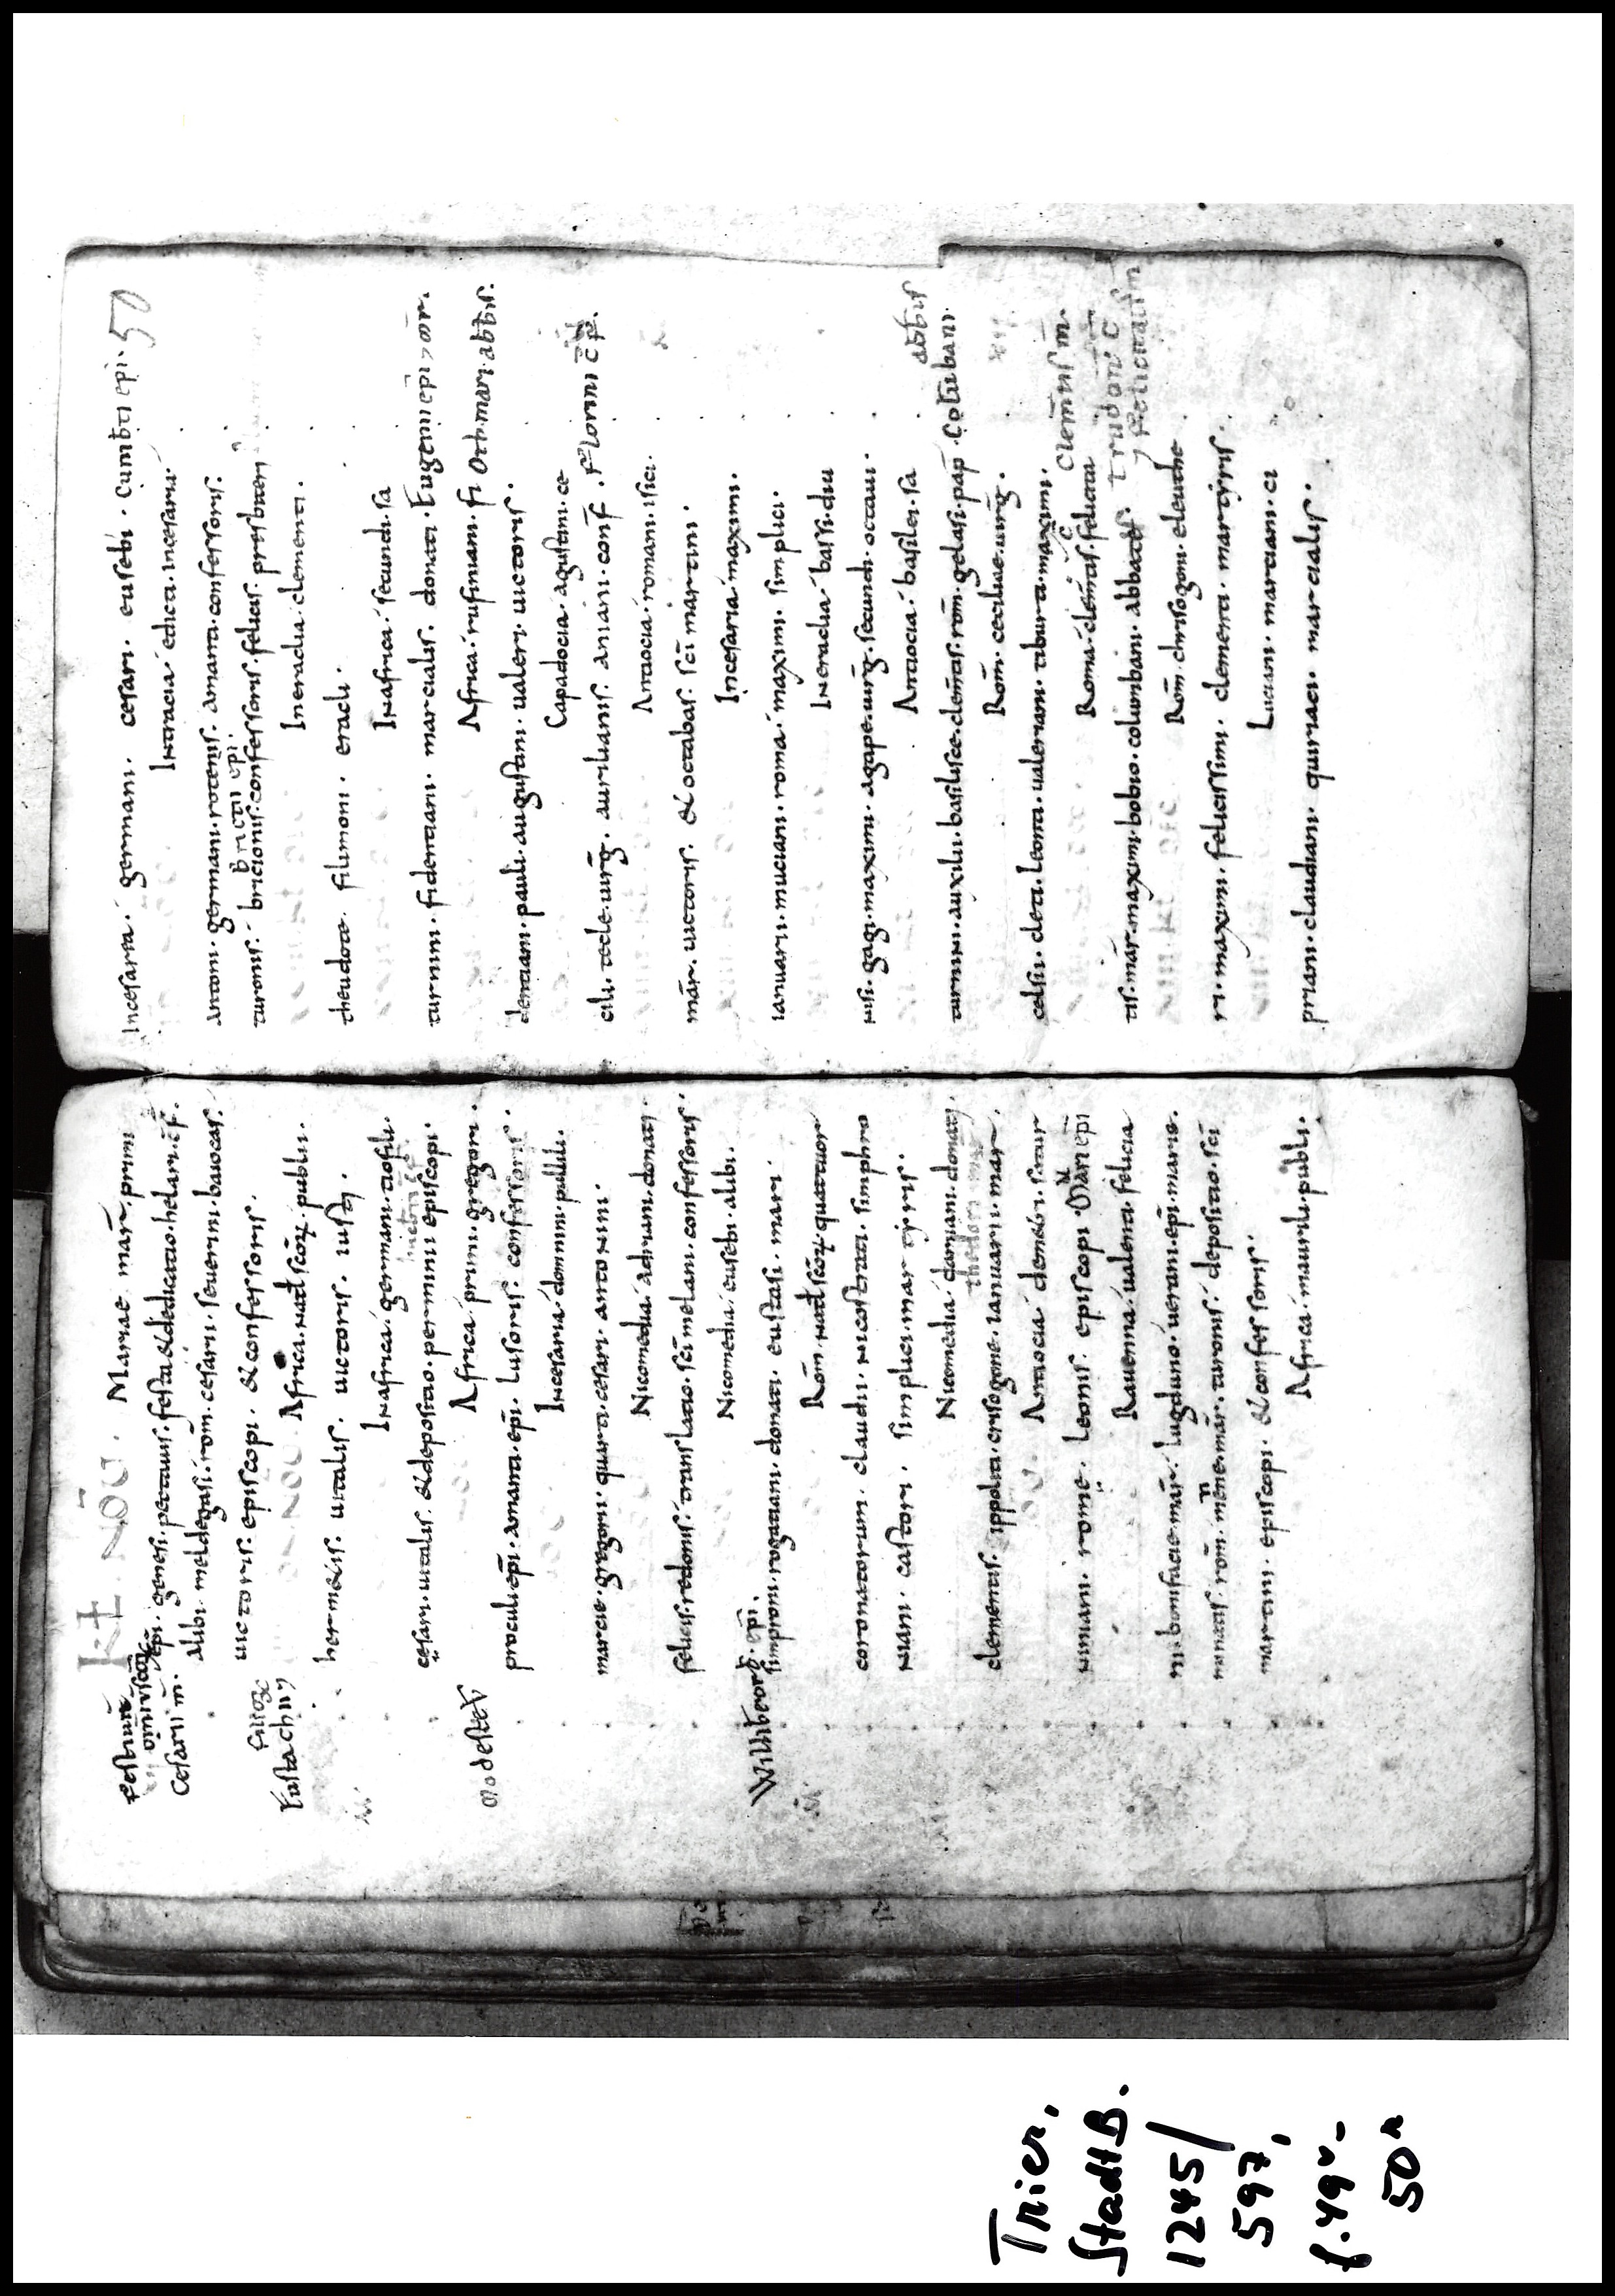 KL NOU. Mariae mar̄. primi
festiuit̄ om̄iu scōꝝ
Cesarii m̄. epi. genesi. pettauis. festa & dedicatio. helarii. c̄f.
Alibi. meldegasi. rom̄. cesarii. seuerini. baiocas.
uictoris. episcopi. & confessoris.
Eustachii
Africa. nat̄ scōꝝ. publii.
hermetis. uitalis. uictoris. iusti.
In africa. germani. tiofili.
cęsari. uitalis. & depositio. perminii episcopi.
Modesti
Africa. primi. gregori.
proculi ep̄i. amanti. ep̄i. lusoris confessoris.
In cesaria. domini. pullili.
marcie. gregori. quarti. cesari. antonini.
Nicomedia. adriani. donati.
felicis. redonis. translatio. sc̄i melani. confessoris.
Nicomedia. eusebi. alibi.
Willibrord. ep̄i.
simproni. rogatiani. donati. eustasi. mari.
Rom̄. nat̄ scōꝝ quattuor
coronatorum. claudii. nicostrati. simphro
niani. castori. simplici. martyris.
Nicomedia. damiani. donati.
theodori
clementis. ippoliti. crisogone. ianuarii. mar.
Antiocia. demetri. statur
niniani. rome. leonis. episcopi
Rauenna. ualenti. felicia
ni. bonifacie mar̄. lugduno. uerani. ep̄i. marie.
minatis. rom̄. mene. mar̄. turonis. depositio. sc̄i
martini. episcopi. & confessoris.
Africa. maurili. publi.
50
In cesaria. germani. cesari. eusebi. cumb̄ti ep̄i.
In tracia. edicti. in cesaria.
antoni. germani. rotenis. amanti. confessoris.
Bricii ep̄i.
turonis. bricionis. confessoris. felicis. presbiteri
In eraclia. clementi.
theudote. filimoni. eracli.
In africa. secundi. sa
turnini. fidentiani. marcialis. donati. Eugenii ep̄i
Africa. rufiniani. fi Othmari. abb̄is.
dentiani. pauli. augustini. ualeri. uictoris.
Capadocia. agustini. ce
cili. tecle. uirḡ. aurilianis. aniani. conf̄. Florini
Antiocia. romani. isici.
mar̄. uictoris. & octabas sc̄i martini.
In cesaria. maximi.
ianuarii. muciani. roma. maximi. simplici.
In eraclia. bassi. diu
nisi. gagi. maximi. agape. uirḡ. secundi. octaui.
Antiocia. basilei. sa
abb̄is
turnini. auxilii. basilisce. clem̄tis. rom̄. gelasi. pap̄. Colūbani.
Rom̄. ceciliae. uirḡ.
celsii. cleti. leonti. ualeriani. tiburti. maximi.
Clem̄tis m̄.
Roma. clem̄tis. felicita
Trudonis c̄
tis. mar̄. maximi. bobio. columbani. abbatis.
Felicitatis m̄
Rom̄. chrisogoni. eleuthe
ri. maximi. felicissimi. clementi. martyris.
Luciani. marciani. ci
priani. claudiani. quiriaci. marcialis.
Trier,
StadtB.
1245/
597,
f.49v-
50r